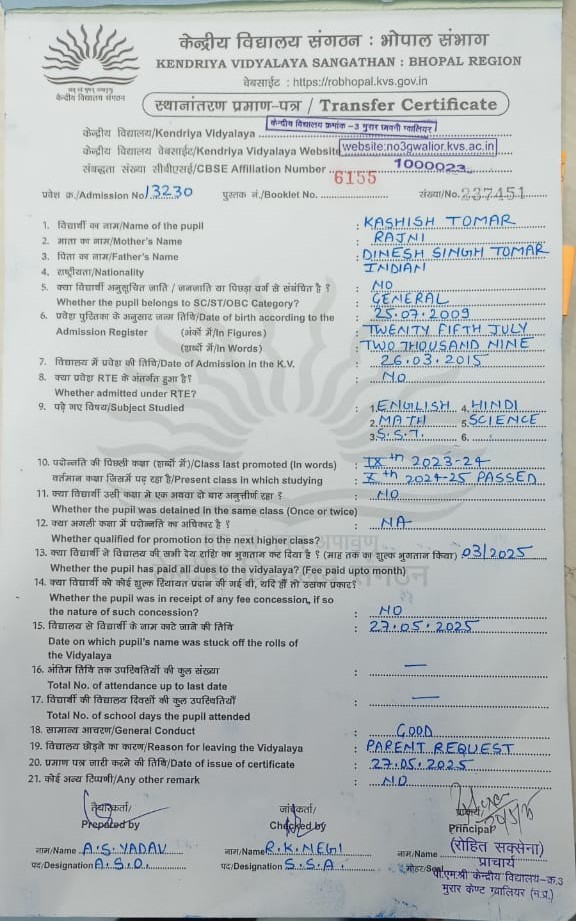 केन्द्रीय विद्यालय संगठन : भोपाल संभाग
KENDRIYA VIDYALAYA SANGATHAN : BHOPAL REGION
वेबसाईट : https://robhopal.kvs.gov.in
केन्द्रीय विद्यालय संगठन
स्थानांतरण प्रमाण-पत्र / Transfer Certificate
केन्द्रीय विद्यालय/Kendriya Vidyalaya केन्द्रीय विद्यालय क्रमांक -3 मुरार छावनी ग्वालियर
केन्द्रीय विद्यालय वेबसाईट/Kendriya Vidyalaya Website website:no3gwalior.kvs.ac.in
संबद्धता संख्या सीबीएसई/CBSE Affiliation Number 1000023
प्रवेश क्र./Admission No 13230 पुस्तक नं./Booklet No. 6155 संख्या/No. 237451
1. विद्यार्थी का नाम/Name of the pupil : KASHISH TOMAR
2. माता का नाम/Mother's Name : RAJNI
3. पिता का नाम/Father's Name : DINESH SINGH TOMAR
4. राष्ट्रीयता/Nationality : INDIAN
5. क्या विद्यार्थी अनुसूचित जाति / जनजाति या पिछड़ा वर्ग से संबंधित है ? : NO
Whether the pupil belongs to SC/ST/OBC Category? : GENERAL
6. प्रवेश पुस्तिका के अनुसार जन्म तिथि/Date of birth according to the : 25.07.2009
Admission Register (अंकों में/In Figures) : TWENTY FIFTH JULY
(शब्दों में/In Words) : TWO THOUSAND NINE
7. विद्यालय में प्रवेश की तिथि/Date of Admission in the K.V. : 26.03.2015
8. क्या प्रवेश RTE के अंतर्गत हुआ है? : NO
Whether admitted under RTE?
9. पढ़े गए विषय/Subject Studied : 1. ENGLISH 4. HINDI
2. MATH 5. SCIENCE
3. S.S.T. 6.
10. पदोन्नति की पिछली कक्षा (शब्दों में)/Class last promoted (In words) : IX th 2023-24
वर्तमान कक्षा जिसमें पढ़ रहा है/Present class in which studying : X th 2024-25 PASSED
11. क्या विद्यार्थी उसी कक्षा में एक अथवा दो बार अनुत्तीर्ण रहा ? : NO
Whether the pupil was detained in the same class (Once or twice)
12. क्या अगली कक्षा में पदोन्नति का अधिकार है ? : NA
Whether qualified for promotion to the next higher class?
13. क्या विद्यार्थी ने विद्यालय की सभी देय राशि का भुगतान कर दिया है ? (माह तक का शुल्क भुगतान किया) 03/2025
Whether the pupil has paid all dues to the vidyalaya? (Fee paid upto month)
14. क्या विद्यार्थी को कोई शुल्क रियायत प्रदान की गई थी, यदि हाँ तो उसका प्रकार?
Whether the pupil was in receipt of any fee concession, if so
the nature of such concession? : NO
15. विद्यालय से विद्यार्थी के नाम काटे जाने की तिथि : 27.05.2025
Date on which pupil's name was stuck off the rolls of
the Vidyalaya
16. अंतिम तिथि तक उपस्थितियों की कुल संख्या : —
Total No. of attendance up to last date
17. विद्यार्थी की विद्यालय दिवसों की कुल उपस्थितियाँ : —
Total No. of school days the pupil attended
18. सामान्य आचरण/General Conduct : GOOD
19. विद्यालय छोड़ने का कारण/Reason for leaving the Vidyalaya : PARENT REQUEST
20. प्रमाण पत्र जारी करने की तिथि/Date of issue of certificate : 27.05.2025
21. कोई अन्य टिप्पणी/Any other remark : NO
तैयारकर्ता/ जांचकर्ता/ प्राचार्य/
Prepared by Checked by Principal
नाम/Name A.S. YADAV नाम/Name R.K. NEGI नाम/Name (रोहित सक्सेना)
पद/Designation A.S.O. पद/Designation S.S.A. मोहर/Seal प्राचार्य
पी.एम.श्री केन्द्रीय विद्यालय-क्र.3
मुरार केण्ट ग्वालियर (म.प्र.)